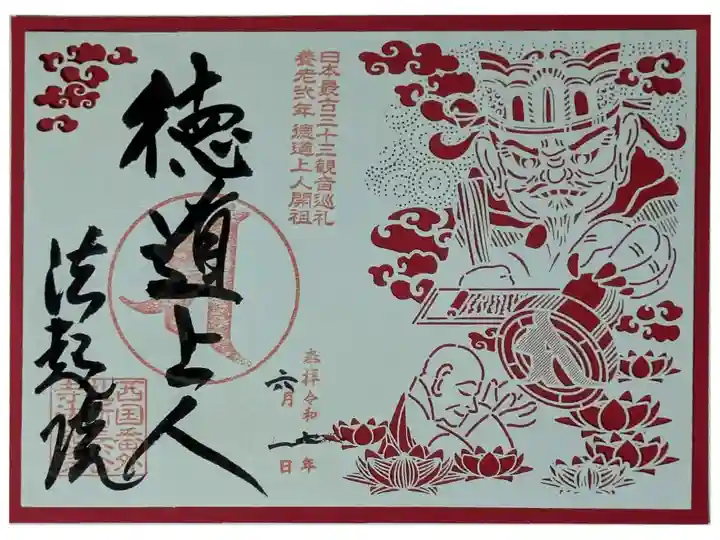 日本最古三十三観音巡礼
養老弐年 徳道上人開祖
奉拝令和七年
六月一日
徳道上人
法起院
西国番外